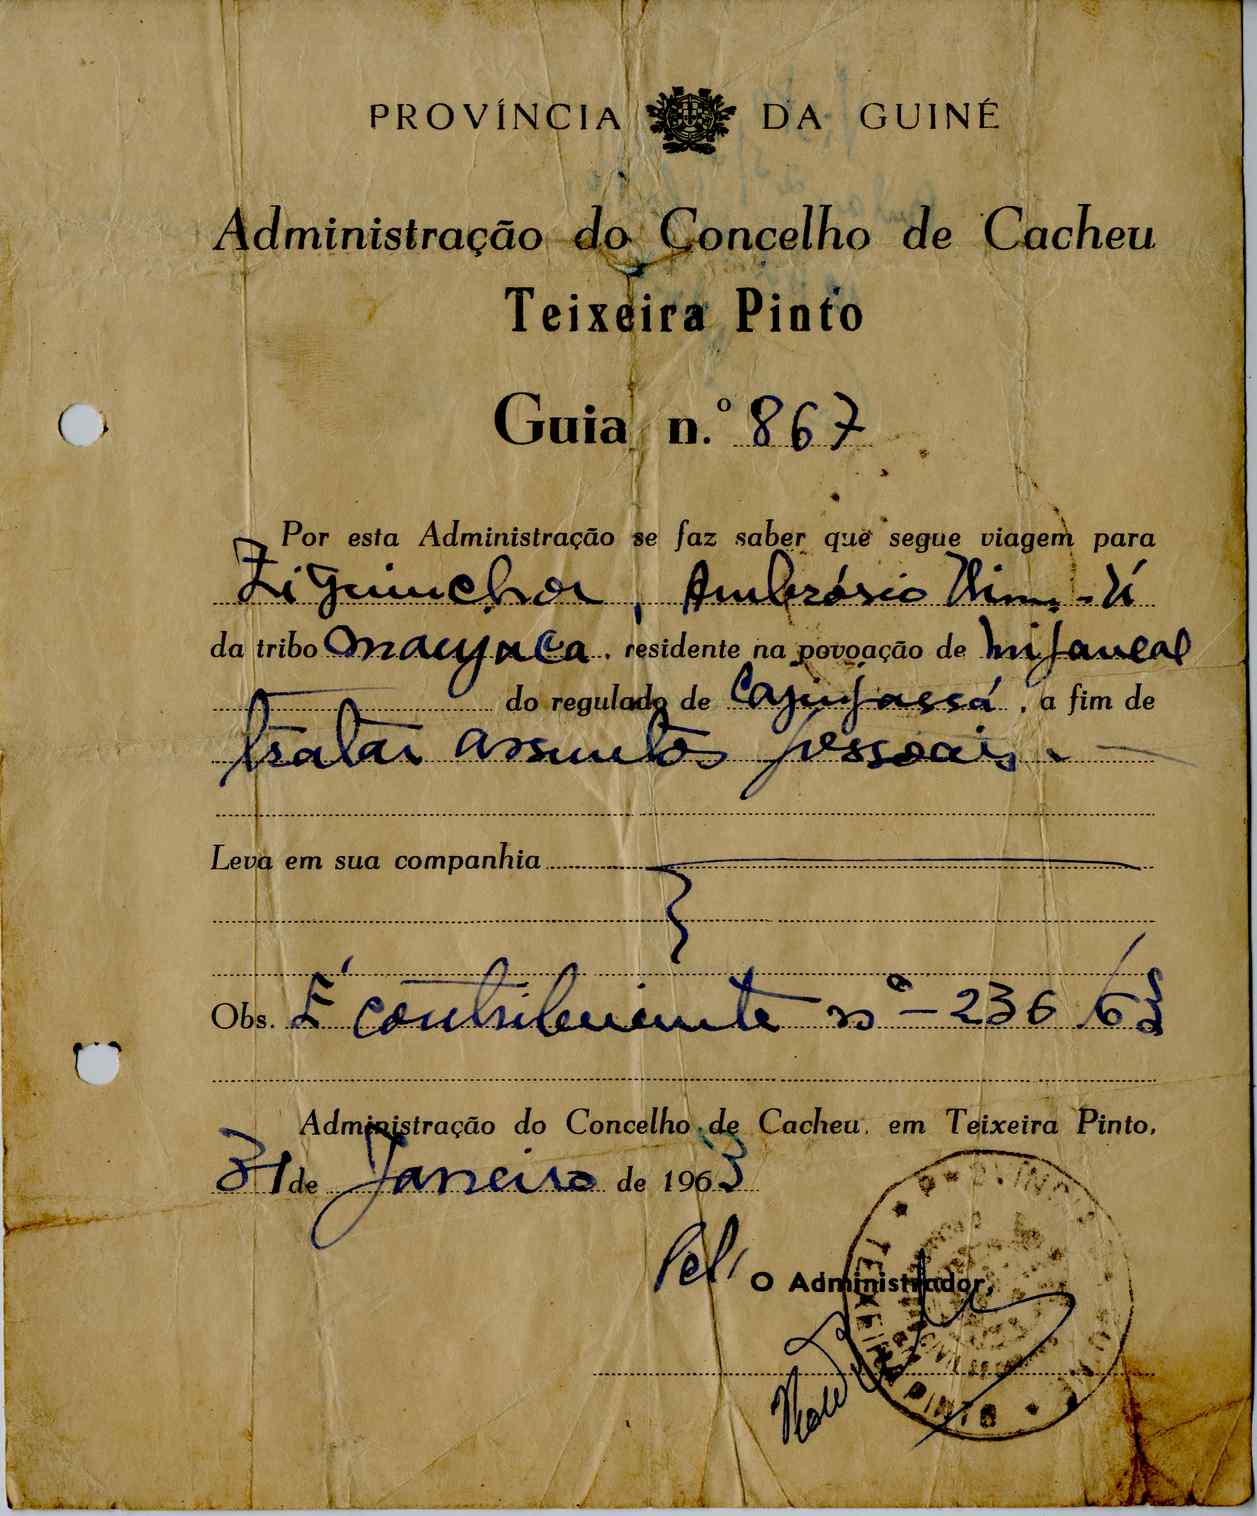 PROVÍNCIA DA GUINÉ
Administração do Concelho de Cacheu
Teixeira Pinto
Guia n.º 867
Por esta Administração se faz saber que segue viagem para
Ziguinchor, Ambrósio
da tribo manjaca, residente na povoação de
do regulado de , a fim de
tratar assuntos pessoais.
Leva em sua companhia
Obs. É contribuinte nº - 236/63
Administração do Concelho de Cacheu, em Teixeira Pinto,
31 de Janeiro de 1963
Pel' O Administrador,
TEIXEIRA PINTO